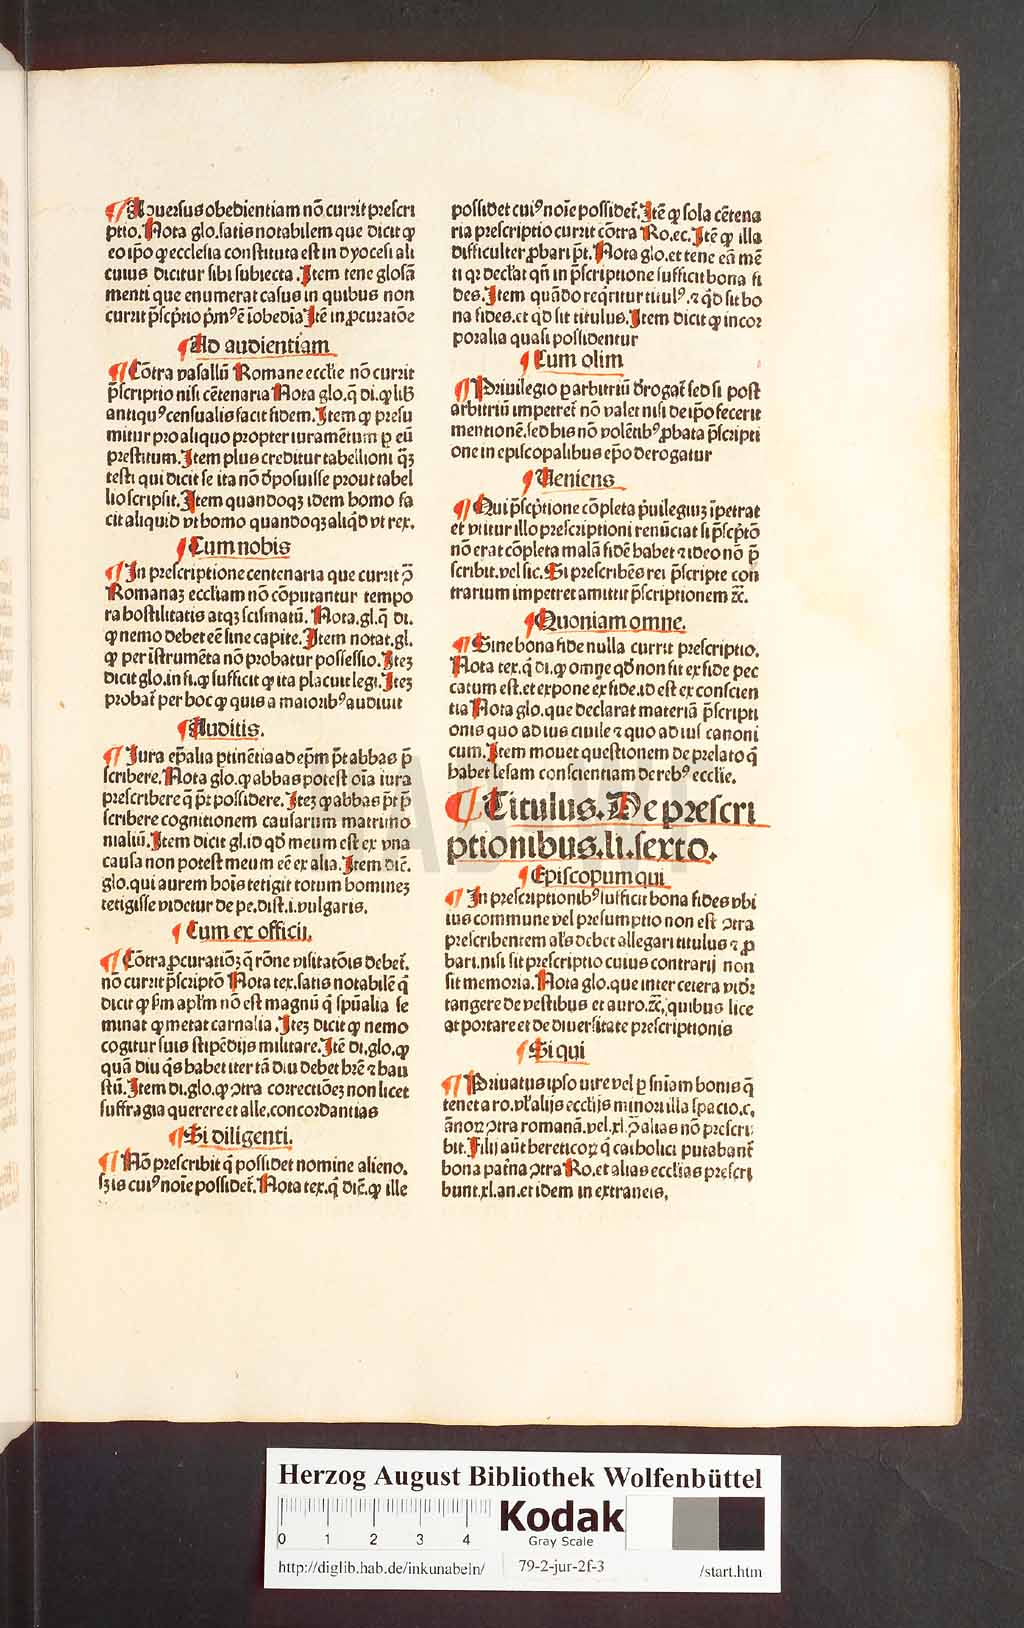 ¶ Aduersus obedientiam nō currit prescri
ptio. Nota glo. satis notabilem que dicit ꝙ
eo ip̄o ꝙ ecclesia constituta est in dyocesi ali
cuius dicitur sibi subiecta. Item tene glosā
menti que enumerat casus in quibus non
currit p̄scp̄tio p̄mꝰē īobedīa Itē in ꝓcuratōe
¶ Ad audientiam
¶ Cōtra vasallū Romane ecclīe nō currit
p̄scriptio nisi cētenaria Nota glo. q̄ di. ꝙ lib̄
antiquꝰ censualis facit fidem. Item ꝙ presu
mitur pro aliquo propter iuramētum ꝑ eū
prestitum. Item plus creditur tabellioni q̄ꝫ
testi qui dicit se ita nō d̄posuisse prout tabel
lio scripsit. Item quandoqꝫ idem homo fa
cit aliquid vt homo quandoqꝫ aliq̄d vt rex.
¶ Cum nobis
¶ In prescriptione centenaria que currit ↄ̄
Romanaꝫ eccliam nō cōputantur tempo
ra hostilitatis atqꝫ scismatū. Nota. gl. q̄ di.
ꝙ nemo debet eē sine capite. Item notat. gl.
ꝙ per īstrumēta nō probatur possessio. Iteꝫ
dicit glo. in fi. ꝙ sufficit ꝙ ita placuit legi. Iteꝫ
probat̄ per hoc ꝙ quis a maioribꝰ audiuit
¶ Auditis.
¶ Iura ep̄alia ꝑtinētia ad ep̄m p̄t abbas p̄
scribere. Nota glo. ꝙ abbas potest oīa iura
prescribere q̄ p̄t possidere. Iteꝫ ꝙ abbas p̄t p̄
scribere cognitionem causarum matrimo
nialiū. Item dicit gl. id qd̄ meum est ex vna
causa non potest meum eē ex alia. Item dic̄.
glo. qui aurem hoīs tetigit totum homineꝫ
tetigisse videtur de pe. dist. i. vulgaris.
¶ Cum ex officij.
¶ Cōtra ꝓcuratiōꝫ q̄ rōne visitatōis debet̄.
nō currit p̄scriptō Nota tex. satis notabilē q̄
dicit ꝙ s̄m apl̄m nō est magnū q̄ spūalia se
minat ꝙ metat carnalia. Iteꝫ dicit ꝙ nemo
cogitur suis stipēdijs militare. Itē di. glo. ꝙ
quā diu q̄s habet iter tā diu debet hr̄e ⁊ hau
stū. Item di. glo. ꝙ ↄtra correctiōeꝫ non licet
suffragia querere et alle. concordantias
¶ Si diligenti.
¶ Nō prescribit q̄ possidet nomine alieno.
sꝫ is cuiꝰ noīe possidet̄. Nota tex. q̄ dic̄. ꝙ ille
possidet cuiꝰ noīe possidet̄. Itē ꝙ sola cētena
ria prescriptio currit cōtra Ro. ec. Itē ꝙ illa
difficulter ꝓbari p̄t. Nota glo. et tene eā mē
ti qꝛ declat̄ qn̄ in p̄scriptione sufficit bona fi
des. Item quādo reqͥritur titulꝰ. ⁊ qd̄ sit bo
na fides. et qd̄ sit titulus. Item dicit ꝙ incor
poralia quasi possidentur
¶ Cum olim
¶ Priuilegio ꝑ arbitriū d̄rogat̄ sed si post
arbitriū impetret̄ nō valet nisi de ip̄o fecerit
mentionē. sed his nō volētibꝰ ꝓbata p̄scripti
one in episcopalibus ep̄o derogatur
¶ Veniens
¶ Qui p̄scp̄tione cōpleta p̄uilegiuꝫ īpetrat
et vtitur illo prescriptioni renūciat si p̄scp̄tō
nō erat cōpleta malā fidē habet ⁊ ideo nō p̄
scribit. vel sic. Si prescribēs rei p̄scripte con
trarium impetret amittit p̄scriptionem ⁊c̄.
¶ Quoniam omne.
¶ Sine bona fide nulla currit prescriptio.
Nota tex. q̄ di. ꝙ omne qd̄ non fit ex fide pec
catum est. et expone ex fide. id est ex conscien
tia Nota glo. que declarat materiā p̄scripti
onis quo ad ius ciuile ⁊ quo ad ius canoni
cum. Item mouet questionem de prelato q̄
habet lesam conscientiam de rebꝰ ecclie.
¶ Titulus. De prescri
ptionibus. li. sexto.
¶ Episcopum qui
¶ In prescriptionibꝰ sufficit bona fides vbi
ius commune vel presumptio non est ↄtra
prescribentem al̄s debet allegari titulus ⁊ ꝓ
bari. nisi sit prescriptio cuius contrarij non
sit memoria. Nota glo. que inter cetera vid̄r
tangere de vestibus et auro. ⁊c̄. quibus lice
at portare et de diuersitate prescriptionis
¶ Si qui
¶ Priuatus ipso iure vel ꝑ sn̄iam bonis q̄
tenet a ro. vl̄ alijs ecclijs minori illa spacio. c.
ānoꝝ ↄtra romanā. vel. xl. ꝓ alias nō prescri
bit. Filij aūt hereticoꝝ q̄ catholici putabant̄
bona pat̄na ↄtra Ro. et alias ecclīas prescri
bunt. xl. an. et idem in extraneis.
HAB WF
Herzog August Bibliothek Wolfenbüttel
0 1 2 3 4
Kodak
Gray Scale
http://diglib.hab.de/inkunabeln/ 79-2-jur-2f-3 /start.htm